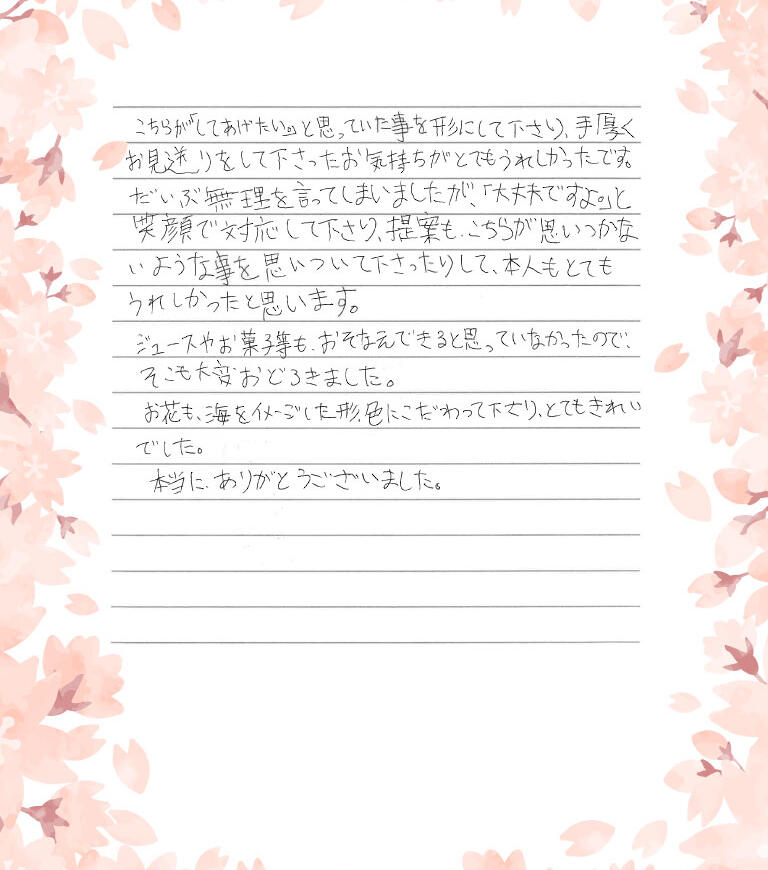 こちらが「してあげたい。」と思っていた事を形にして下さり、手厚く
お見送りをして下さったお気持ちがとてもうれしかったです。
だいぶ無理を言ってしまいましたが、「大丈夫ですよ。」と
笑顔で対応して下さり、提案も、こちらが思いつかな
いような事を思いついて下さったりして、本人もとても
うれしかったと思います。
ジュースやお菓子等も、おそなえできると思っていなかったので、
そこも大変おどろきました。
お花も、海をイメージした形、色にこだわって下さり、とてもきれい
でした。
本当に、ありがとうございました。